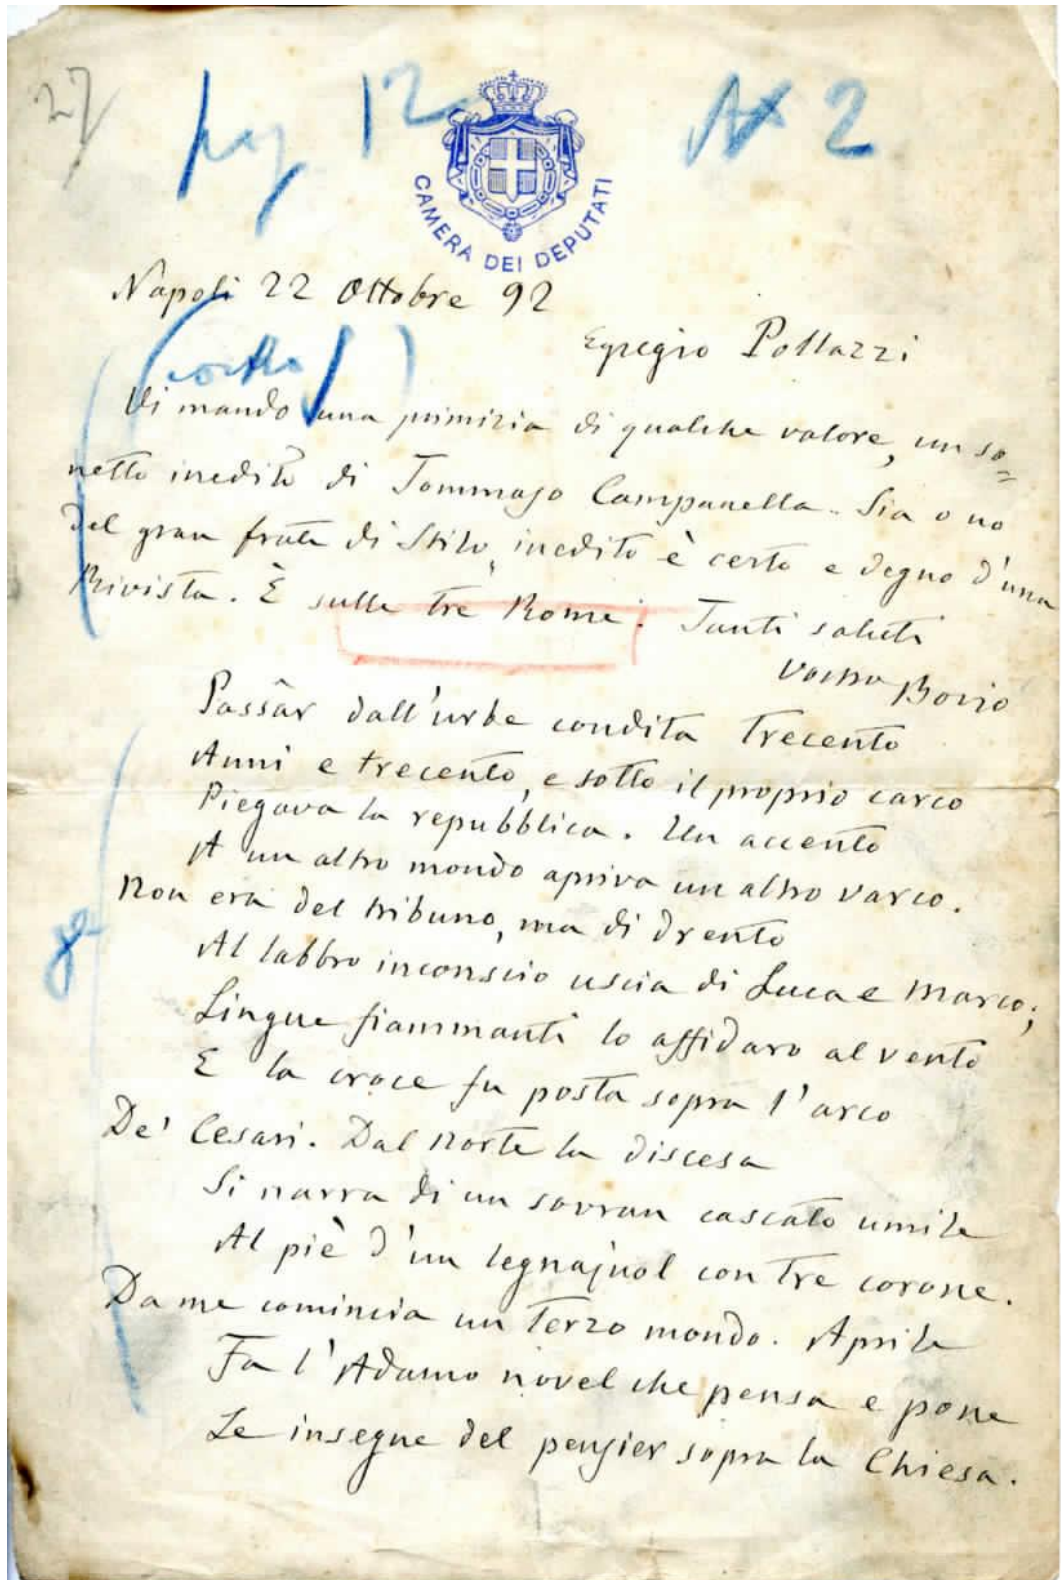 27
pag 12 N 2
CAMERA DEI DEPUTATI
Napoli 22 Ottobre 92
Egregio Pollazzi
Vi mando una primizia di qualche valore, un so=
netto inedito di Tommaso Campanella. Sia o no
del gran frate di Stilo, inedito è certo e degno d'una
Rivista. È sulle tre Rome. Tanti saluti
Vostro Bovio
Passâr dall'urbe condita trecento
Anni e trecento, e sotto il proprio carco
Piegava la repubblica. Un accento
A un altro mondo apriva un altro varco.
Non era del tribuno, ma di drento
Al labbro inconscio uscia di Luca e Marco;
Lingue fiammanti lo affidaro al vento
E la croce fu posta sopra l'arco
De' Cesari. Dal Norte la discesa
Si narra di un sovran cascato umile
Al piè d'un legnajuol con tre corone.
Da me comincia un terzo mondo. Aprile
Fa l'Adamo novel che pensa e pone
Le insegne del pensier sopra la Chiesa.